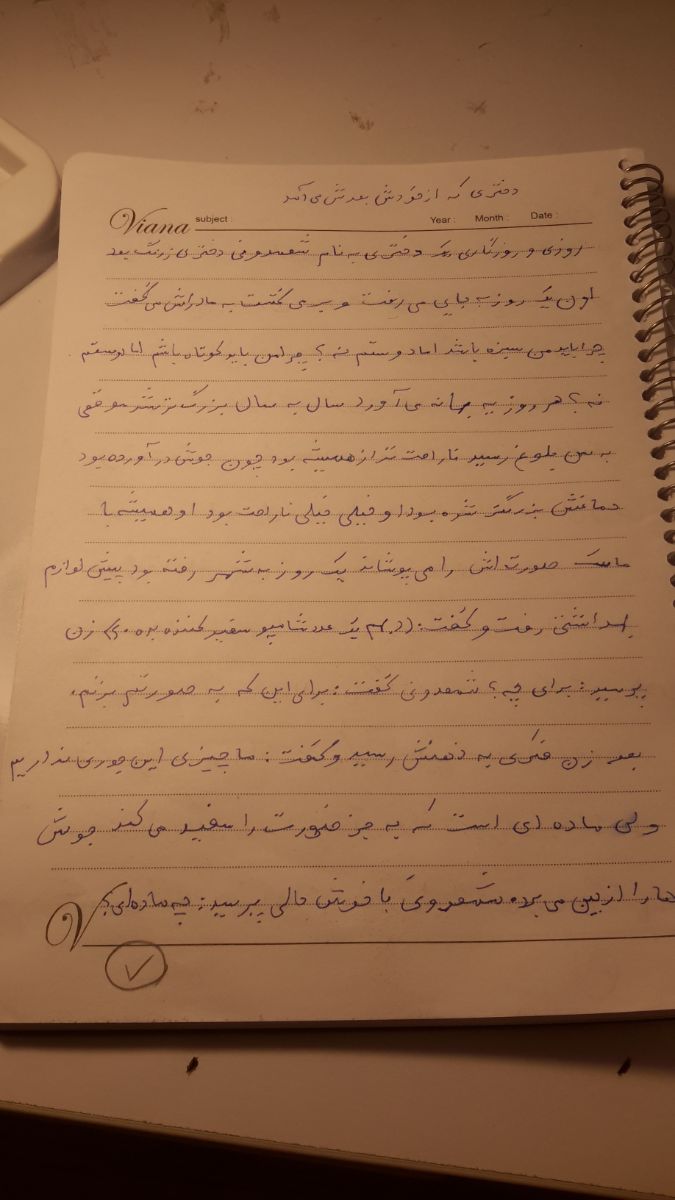 دختری که از خودش بدش می آمد
Viana subject : Year : Month : Date :
روزی و روزگاری یک دختری به نام شمعدونی دختری زرنگ بود
اون یک روز به جایی می رفت و بر می گشت به مادرش می گفت
چرا باید من سبزه باشم اما دوستم نه؟ چرا من باید کوتاه باشم اما دوستم
نه؟ هر روز یه بهانه می آورد سال به سال بزرگ تر شد موقعی
به سن بلوغ رسید ناراحت تر از همیشه بود چون جوش در آورده بود
دماغش بزرگتر شده بود او خیلی خیلی ناراحت بود او همیشه با
ماسک صورت اش را می پوشاند یک روز به شهر رفته بود پیش لوازم
بهداشتی رفت و گفت: یک عدد شامپو سفید کننده بده زن
پرسید: برای چه؟ شمعدونی گفت: برای این که به صورتم بزنم.
بعد زن فکری به ذهنش رسید و گفت: ما چیزی این جوری نداریم
ولی ماده ای است که به جز صورت را سفید می کند جوش
ها را از بین می برد شمعدونی با خوش حالی پرسید: چه ماده ای؟